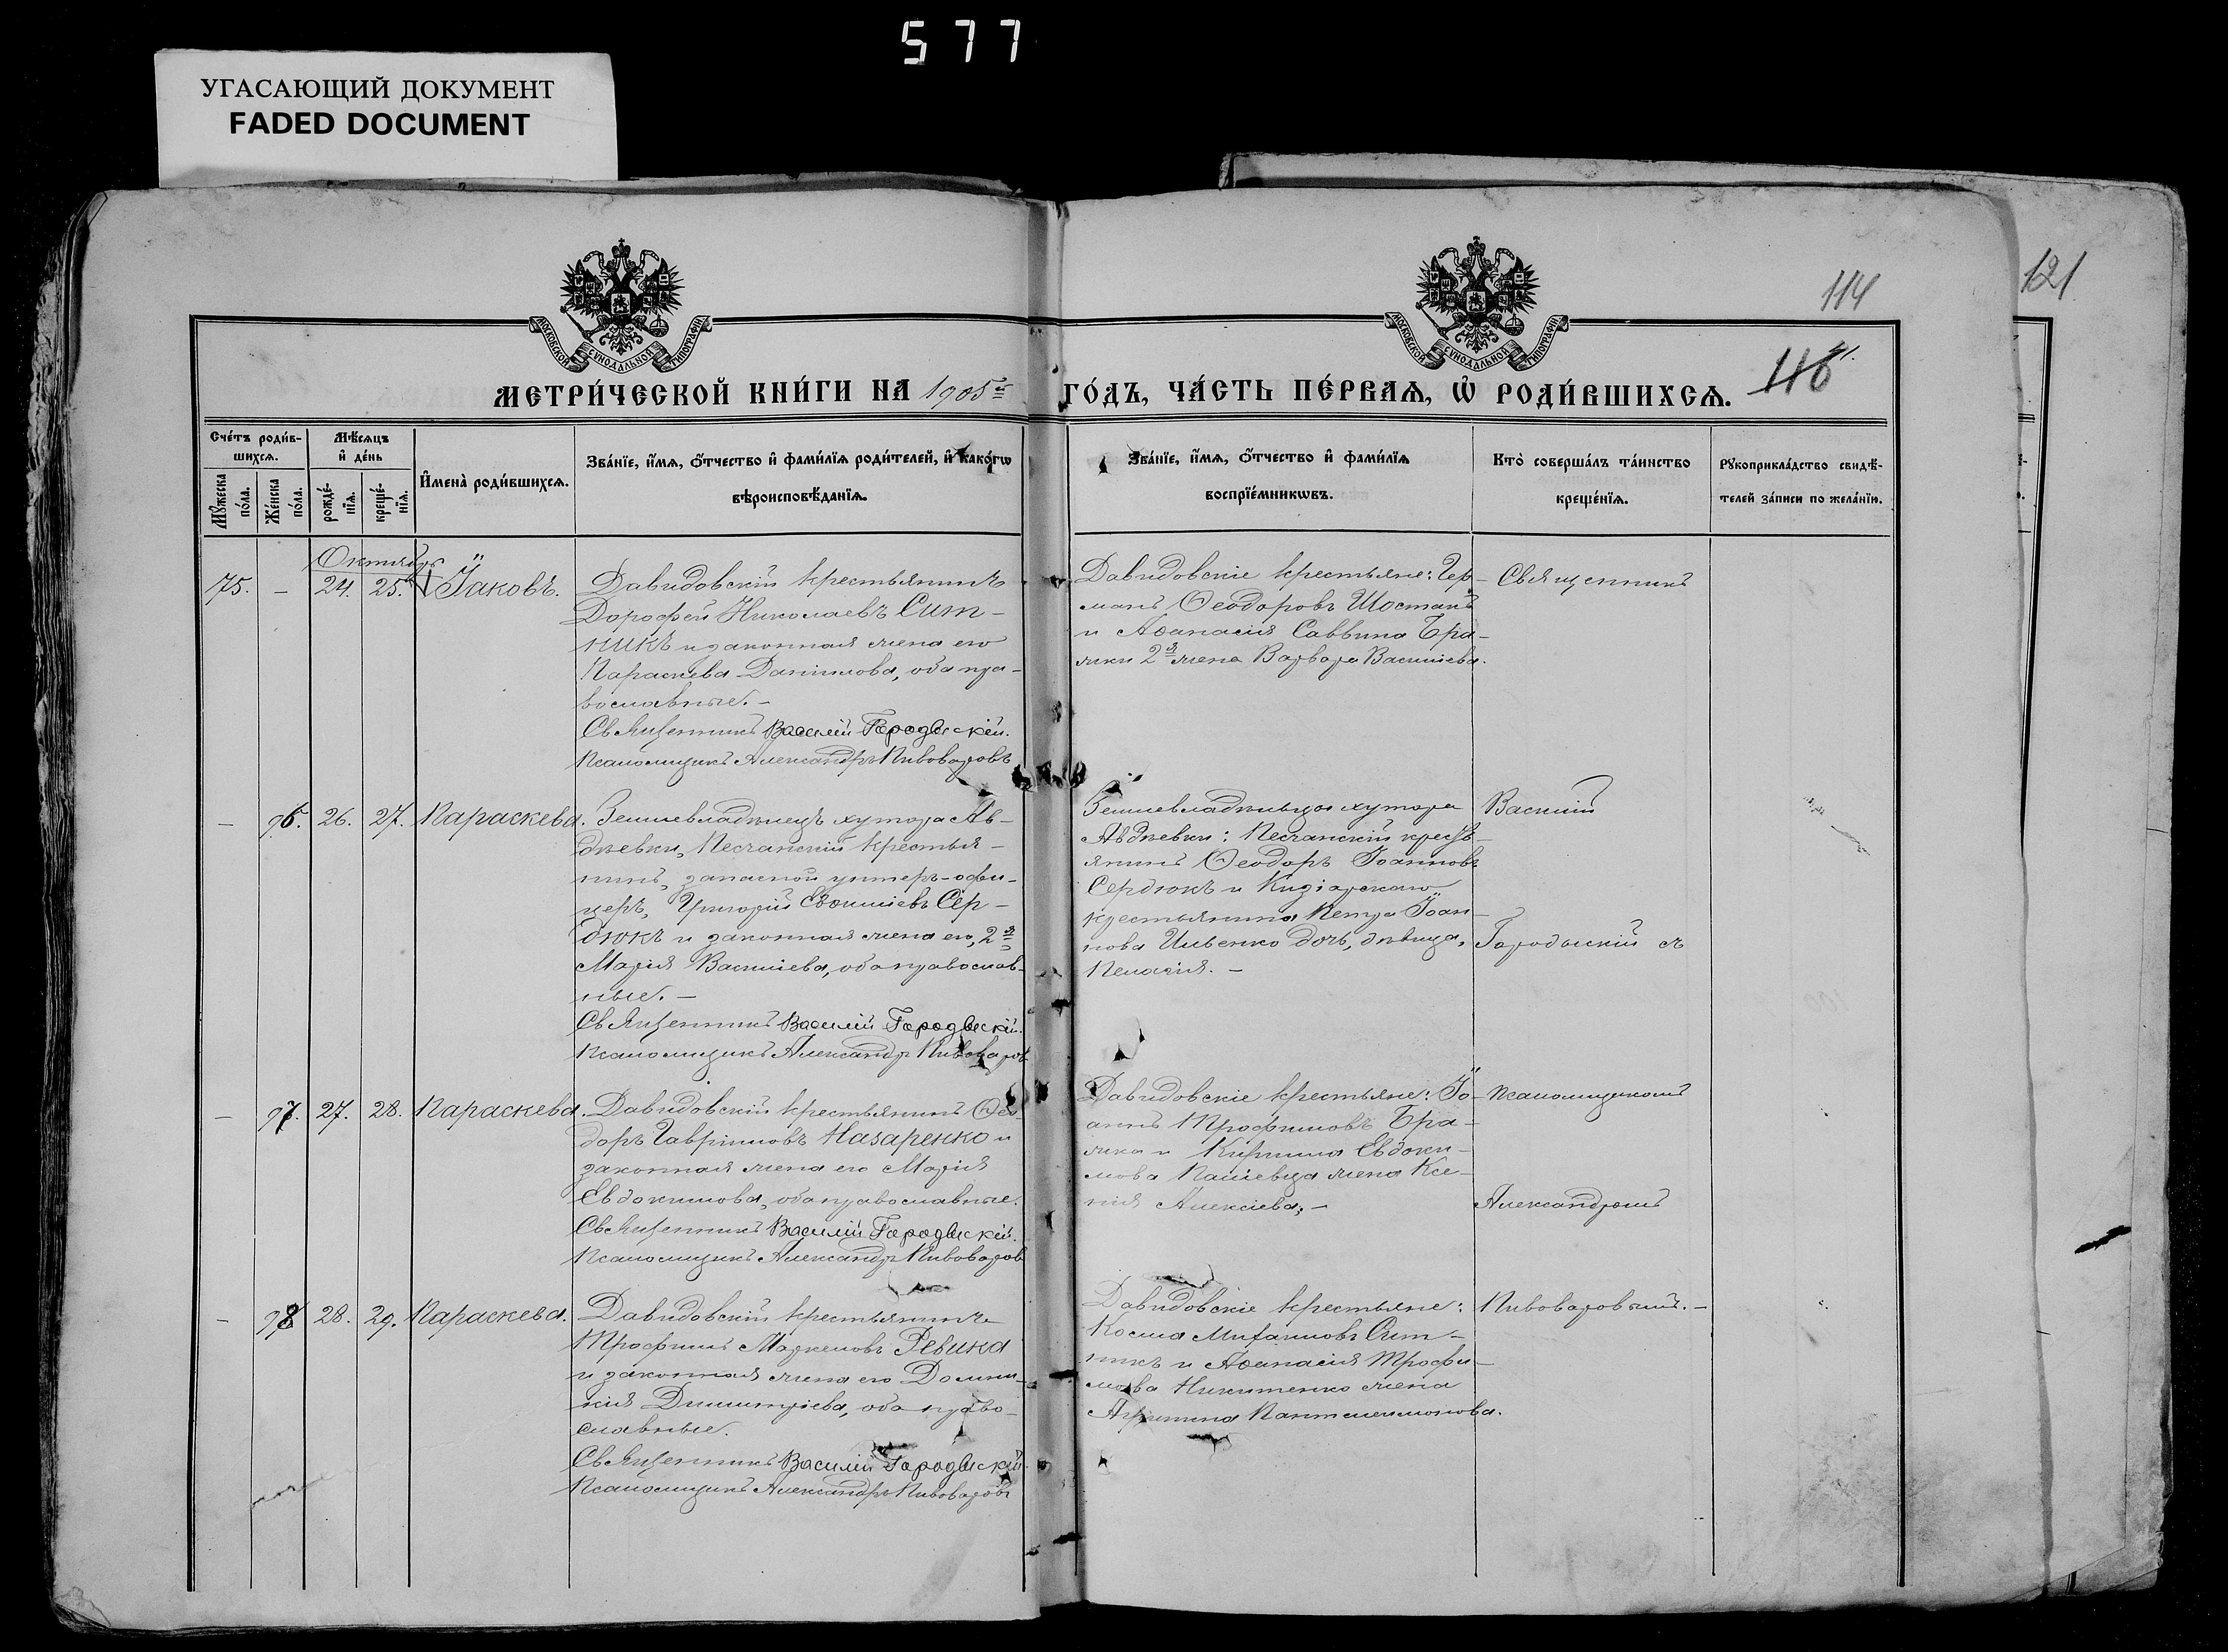 577
УГАСАЮЩИЙ ДОКУМЕНТ
FADED DOCUMENT
114
121
МОСКОВСКОЙ СѴНОДАЛЬНОЙ ТИПОГРАФІИ
МОСКОВСКОЙ СѴНОДАЛЬНОЙ ТИПОГРАФІИ
МЕТРИ́ЧЕСКОЙ КНИ́ГИ НА 1905й ГО́ДЪ, ЧА́СТЬ ПЕ́РВАѦ, Ѡ҆ РОДИ́ВШИХСѦ.
Сче́тъ роди́в-
шихсѧ.
Мꙋжеска по́ла.
Же́нска по́ла.
Мѣ́сѧцъ
и҆ де́нь
рожде́-
нїѧ.
креще́-
нїѧ.
И҆мена̀ роди́вшихсѧ.
Зва́нїе, и҆́мѧ, ѻ҆́тчество и҆ фами́лїѧ роди́телей, и҆ како́гѡ
вѣроисповѣ́данїѧ.
Зва́нїе, и҆́мѧ, ѻ҆́тчество и҆ фами́лїѧ
воспрїе́мникѡвъ.
Кто̀ соверша́лъ та́инство
креще́нїѧ.
Рꙋкоприкла́дство свидѣ́-
телей за́писи по жела́нїю.
Октябрь
75. – 24. 25. Іаковъ.
Давидовскій крестьянинъ
Дорофей Николаевъ Сит-
никъ и законная жена его
Параскева Даніилова, оба пра-
вославные. –
Священникъ Василій Городыскій.
Псаломщикъ Александръ Пивоваровъ
Давидовскіе крестьяне: Гер-
манъ Ѳеодоровъ Шостакъ
и Аѳанасія Саввина Бра-
жки 2я жена Варвара Васильева.
Священникъ
– 96. 26. 27. Параскева.
Землевладѣлецъ хутора Ав-
дѣевки, Песчанскій крестья-
нинъ, запасной унтеръ-офи-
церъ, Григорій Евфиміевъ Сер-
дюкъ и законная жена его, 2я
Марія Васильева, оба православ-
ные. –
Священникъ Василій Городыскій.
Псаломщикъ Александръ Пивоваровъ
Землевладѣльцы хутора
Авдѣевки: Песчанскій кресть-
янинъ Ѳеодоръ Іоанновъ
Сердюкъ и
крестьянина Петра Іоан-
нова Ильенко дочь, дѣвица,
Пелагія. –
Василій
Городыскій съ
– 97. 27. 28. Параскева.
Давидовскій крестьянинъ Ѳео-
доръ Гавріиловъ Назаренко и
законная жена его Марія
Евдокимова, оба православные.
Священникъ Василій Городыскій.
Псаломщикъ Александръ Пивоваровъ
Давидовскіе крестьяне: Іо-
аннъ Трофимовъ Бра-
жка и Кирилла Евдоки-
мова жена Ксе-
нія Алексіева. –
псаломщикомъ
Александромъ
– 98. 28. 29. Параскева.
Давидовскій крестьянинъ
Трофимъ Маркеловъ Ревика
и законная жена его Домни-
кія Димитріева, оба право-
славные.
Священникъ Василій Городыскій.
Псаломщикъ Александръ Пивоваровъ
Давидовскіе крестьяне:
Косма Михаиловъ Сит-
никъ и Аѳанасія Трофи-
мова Никитенко жена
Агрипина Пантелеимонова.
Пивоваровымъ. –